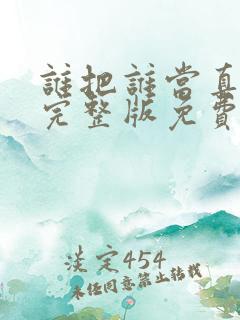 誰把誰當真
完整版免費
淡定454
未任同意禁止转载